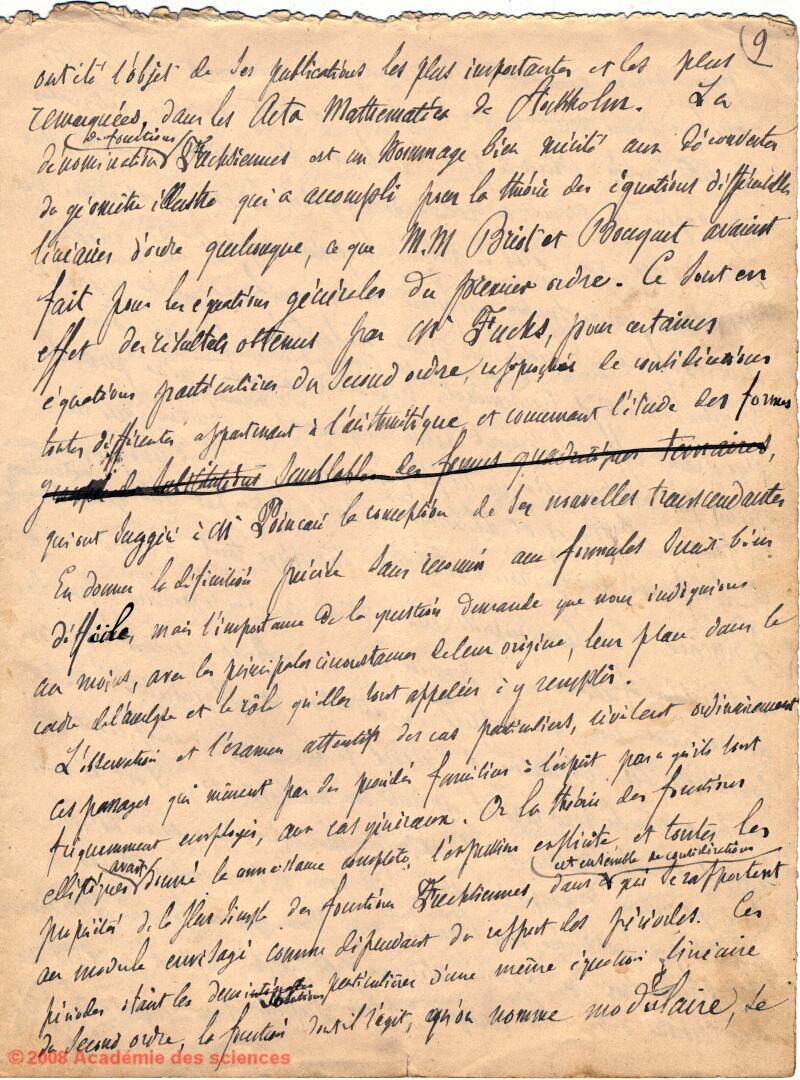 9
ont été l'objet de ses publications les plus importantes et les plus
remarquées, dans les Acta Mathematica de Stockholm. La
de fonctions
dénomination Fuchsiennes est un hommage bien mérité aux découvertes
du géomètre illustre qui a accompli pour la théorie des équations différentielles
linéaires d'ordre quelconque, ce que M.M Briot et Bouquet avaient
fait pour les équations générales du premier ordre. Ce sont en
effet des résultats obtenus par Mr Fuchs, pour certaines
équations particulières du second ordre, rapprochés de considérations
toutes différentes appartenant à l'arithmétique, et concernant l'étude des formes
substitutions semblables des formes quadratiques ternaires,
qui ont suggéré à Mr Poincaré la conception de ses nouvelles transcendantes
En donner la définition précise sans recourir aux formules serait bien
difficile, mais l'importance de la question demande que nous indiquions
au moins, avec les principales circonstances de leur origine, leur place dans le
cadre de l'analyse et le rôle qu'elles sont appelées à y remplir.
L'observation et l'examen attentifs des cas particuliers, révèlent ordinairement
ces passages qui mènent par des procédés familiers à l'esprit parce qu'ils sont
fréquemment employés, aux cas généraux. Or la théorie des fonctions
elliptiques avait donné la connaissance complète, l'expression explicite et toutes les
cet ensemble de considérations
propriétés de la plus simple des fonctions Fuchsiennes, dans qui se rapportent
au module envisagé comme dépendant du rapport des périodes. Ces
périodes étant les deux solutions particulières d'une même équation linéaire
du second ordre, la fonction dont il s'agit, qu'on nomme modulaire, se
© 2008 Académie des sciences